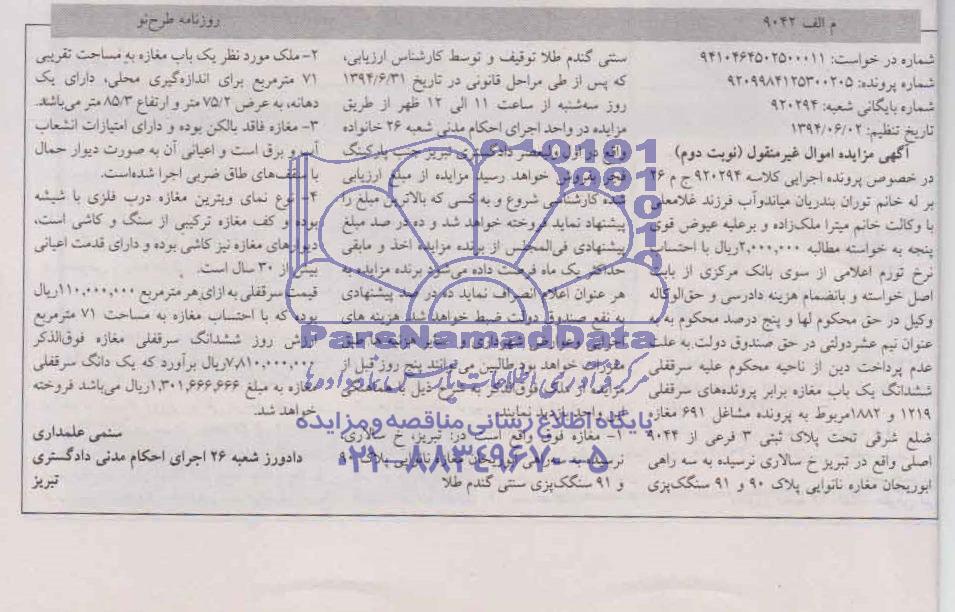 م الف ۹۰۴۲
روزنامه طرح‌نو
شماره در خواست: ۹۴۱۰۴۶۴۵۰۲۵۰۰۰۱۱
شماره پرونده: ۹۲۰۹۹۸۴۱۲۵۳۰۰۲۰۵
شماره بایگانی شعبه: ۹۲۰۲۹۴
تاریخ تنظیم: ۱۳۹۴/۰۶/۰۲
آگهی مزایده اموال غیرمنقول (نوبت دوم)
در خصوص پرونده اجرایی کلاسه ۹۲۰۲۹۴ ج م ۲۶
بر له خانم توران بندریان میاندوآب فرزند غلامعلی
با وکالت خانم میترا ملک‌زاده و برعلیه عیوض قوی
پنجه به خواسته مطالبه ۲,۰۰۰,۰۰۰ریال با احتساب
نرخ تورم اعلامی از سوی بانک مرکزی از بابت
اصل خواسته و بانضمام هزینه دادرسی و حق‌الوکاله
وکیل در حق محکوم لها و پنج درصد محکوم به به
عنوان نیم عشردولتی در حق صندوق دولت به علت
عدم پرداخت دین از ناحیه محکوم علیه سرقفلی
ششدانگ یک باب مغازه برابر پرونده‌های سرقفلی
۱۲۱۹ و ۱۸۸۲مربوط به پرونده مشاغل ۶۹۱ مغازه
ضلع شرقی تحت پلاک ثبتی ۳ فرعی از ۹۰۴۴
اصلی واقع در تبریز خ سالاری نرسیده به سه راهی
ابوریحان مغاره نانوایی پلاک ۹۰ و ۹۱ سنگک‌پزی
سنتی گندم طلا توقیف و توسط کارشناس ارزیابی،
که پس از طی مراحل قانونی در تاریخ ۱۳۹۴/۶/۳۱
روز سه‌شنبه از ساعت ۱۱ الی ۱۲ ظهر از طریق
مزایده در واحد اجرای احکام مدنی شعبه ۲۶ خانواده
واقع در اول ولیعصر دادگستری تبریز جنب پارکینگ
فجر بفروش خواهد رسید مزایده از مبلغ ارزیابی
شده کارشناسی شروع و به کسی که بالاترین مبلغ را
پیشنهاد نماید فروخته خواهد شد و ده در صد مبلغ
پیشنهادی فی‌المجلس از برنده مزایده اخذ و مابقی
حداکثر یک ماه فرصت داده می‌شود برنده مزایده به
هر عنوان اعلام انصراف نماید ده در صد پیشنهادی
به نفع صندوق دولت ضبط خواهد شد هزینه های
اجرایی و عوارض شهرداری و سایر هزینه ها طبق
مقررات خواهد بود طالبین می‌توانند پنج روز قبل از
مزایده از ملک فوق‌الذکر به شرح ذیل با هماهنگی
این واحد بازدید نمایند.
۱- مغازه فوق واقع است در: تبریز، خ سالاری
نرسیده به سه‌راهی ابوریحان مغازه نانوایی پلاک ۹۰
و ۹۱ سنگک‌پزی سنتی گندم طلا
۲- ملک مورد نظر یک باب مغازه به مساحت تقریبی
۷۱ مترمربع برای اندازه‌گیری محلی، دارای یک
دهانه، به عرض ۷۵/۲ متر و ارتفاع ۸۵/۳ متر می‌باشد.
۳- مغازه فاقد بالکن بوده و دارای امتیازات انشعاب
آب و برق است و اعیانی آن به صورت دیوار حمال
با سقف‌های طاق ضربی اجرا شده‌است.
۴- نوع نمای ویترین مغازه درب فلزی با شیشه
بوده و کف مغازه ترکیبی از سنگ و کاشی است،
دیوارهای مغازه نیز کاشی بوده و دارای قدمت اعیانی
بیش از ۳۰ سال است.
قیمت سرقفلی به ازای هر مترمربع ۱۱۰,۰۰۰,۰۰۰ریال
بوده که با احتساب مغازه به مساحت ۷۱ مترمربع
ارزش روز ششدانگ سرقفلی مغازه فوق‌الذکر
۷,۸۱۰,۰۰۰,۰۰۰ریال برآورد که یک دانگ سرقفلی
مغازه به مبلغ ۱,۳۰۱,۶۶۶,۶۶۶ریال می‌باشد فروخته
خواهد شد.
صنمی علمداری
دادورز شعبه ۲۶ اجرای احکام مدنی دادگستری
تبریز
ParsNamadData
پایگاه اطلاع رسانی مناقصه و مزایده
۰۲۱-۸۸۳۴۹۶۷۰-۵